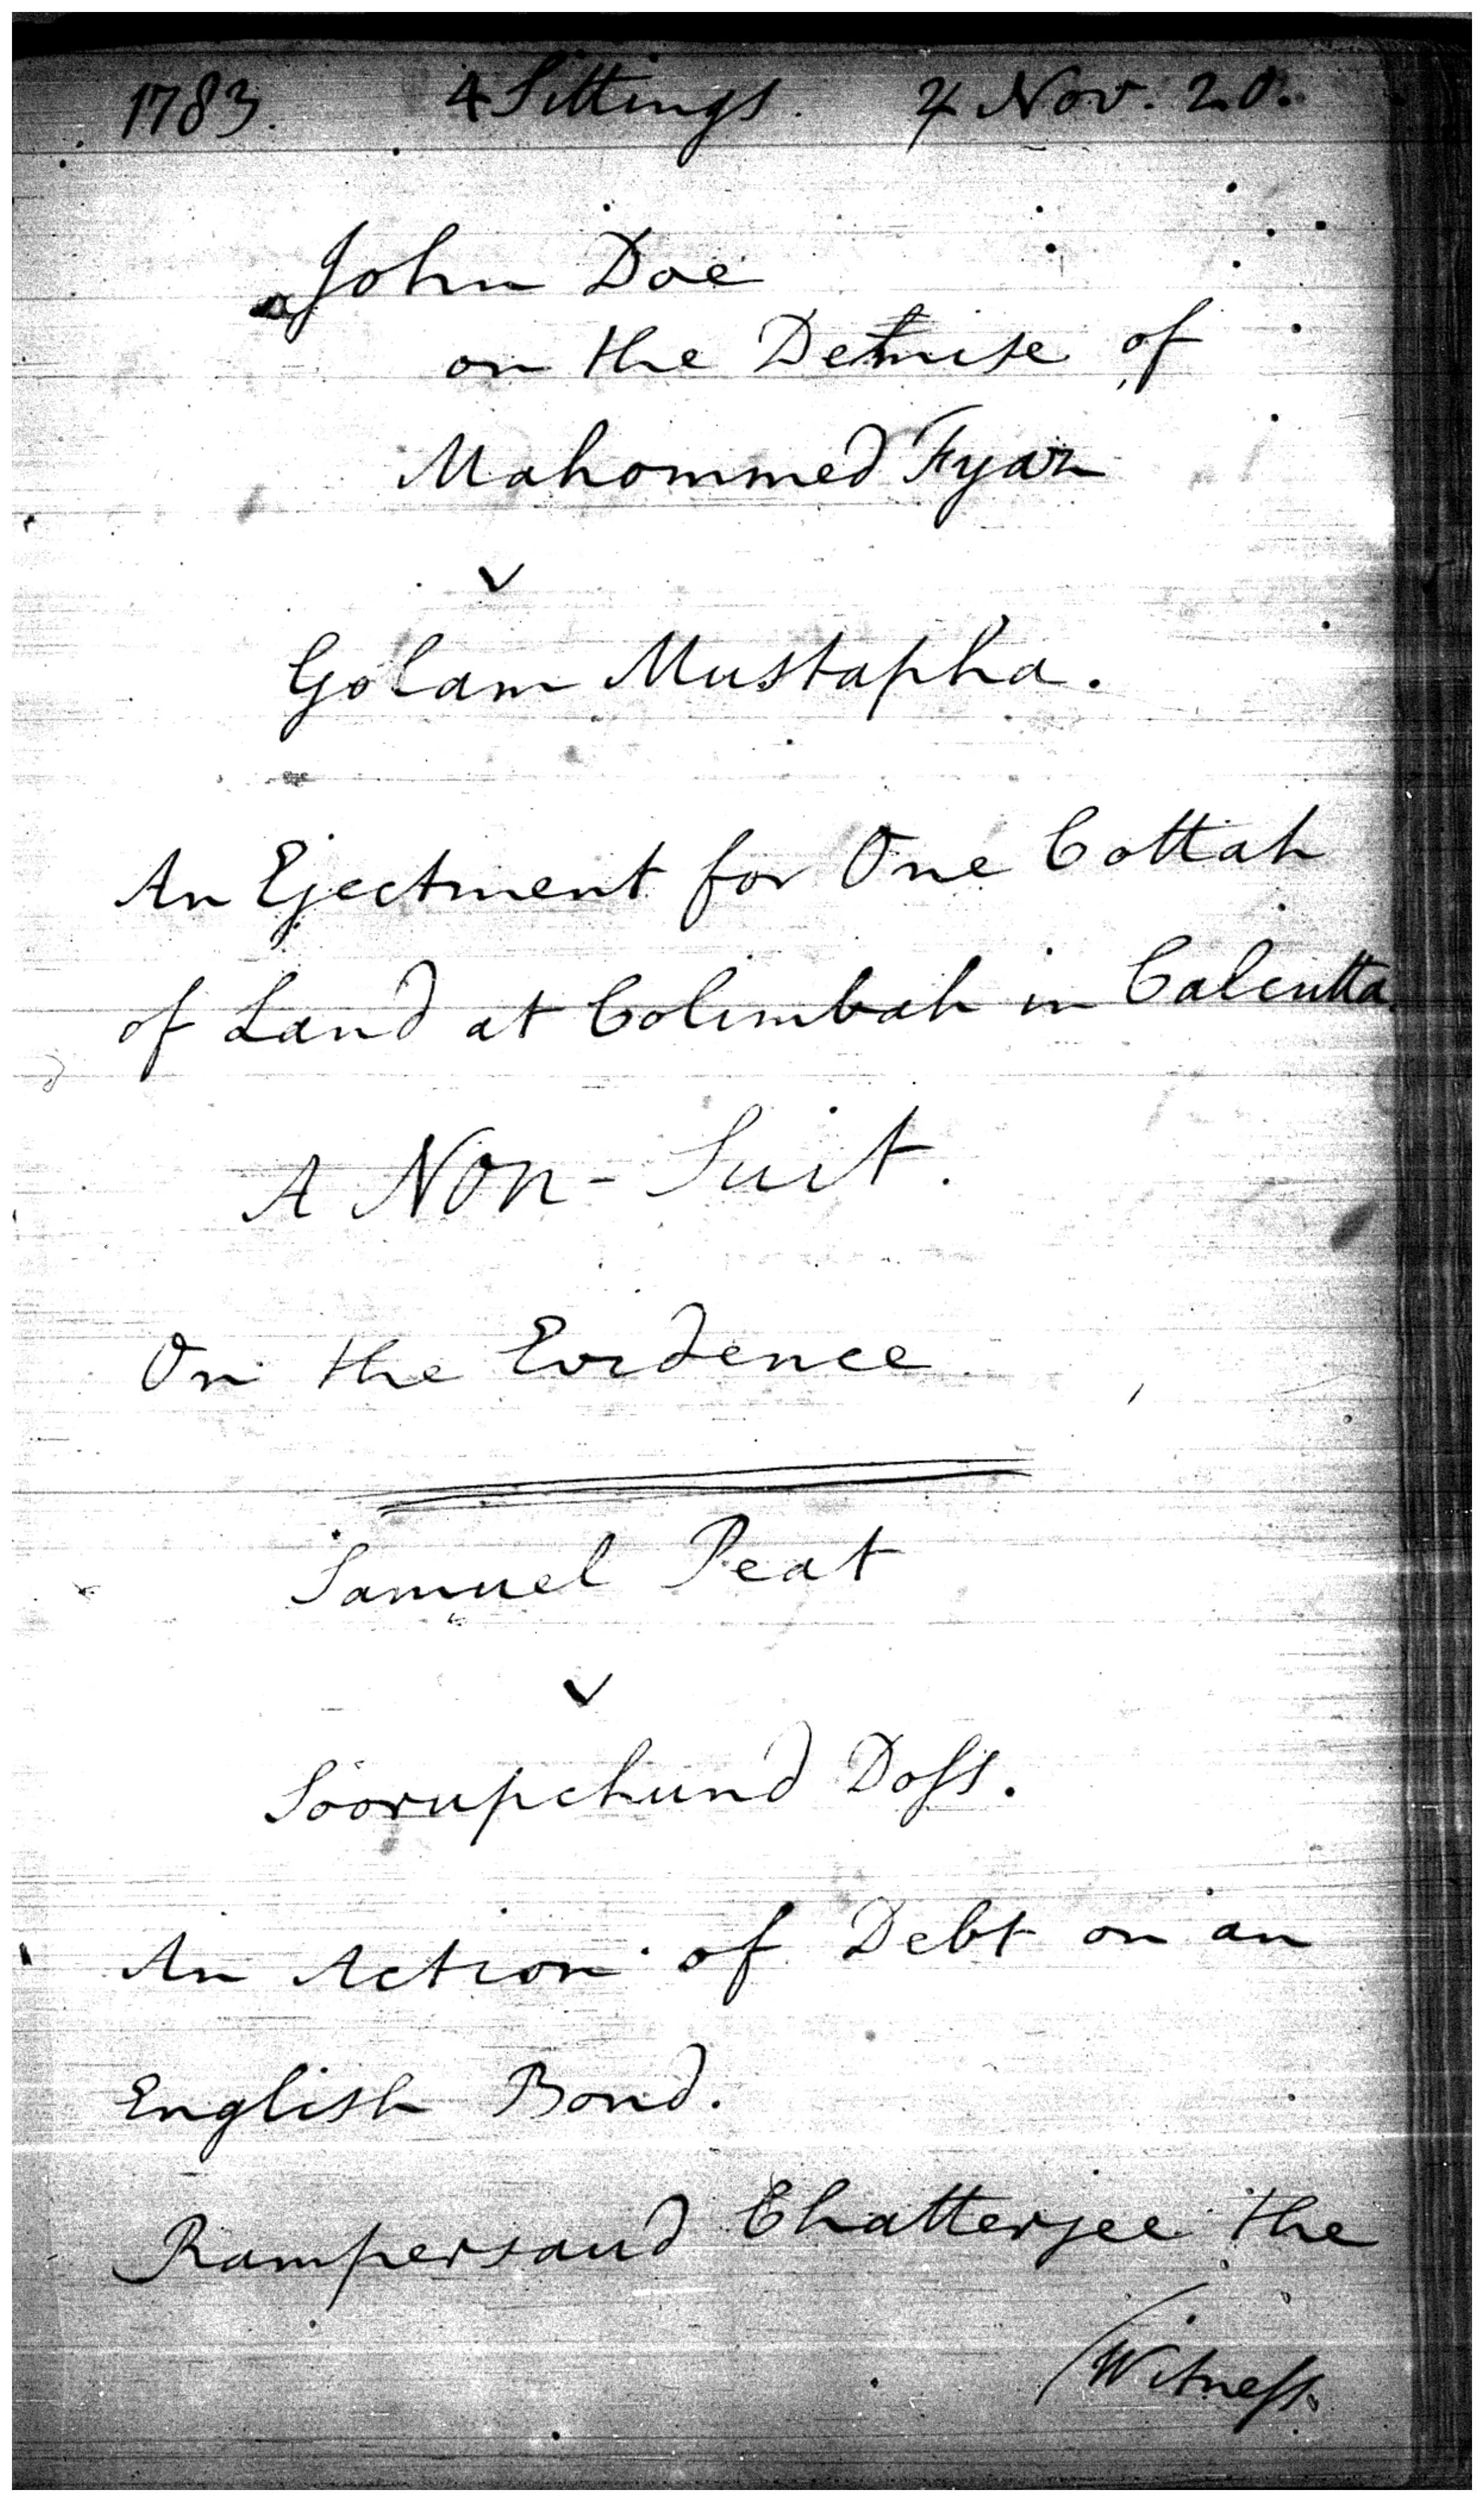 1783. 4 Sittings. 4 Nov. 20.
John Doe
on the Demise of
Mahommed Fyaz
v
Golam Mustapha.
An Ejectment for One Cottah
of Land at Colimbah in Calcutta.
A Non-Suit.
On the Evidence
Samuel Peat
v
Soorupchund Doss.
An Action of Debt on an
English Bond.
Rampersaud Chatterjee the
Witness